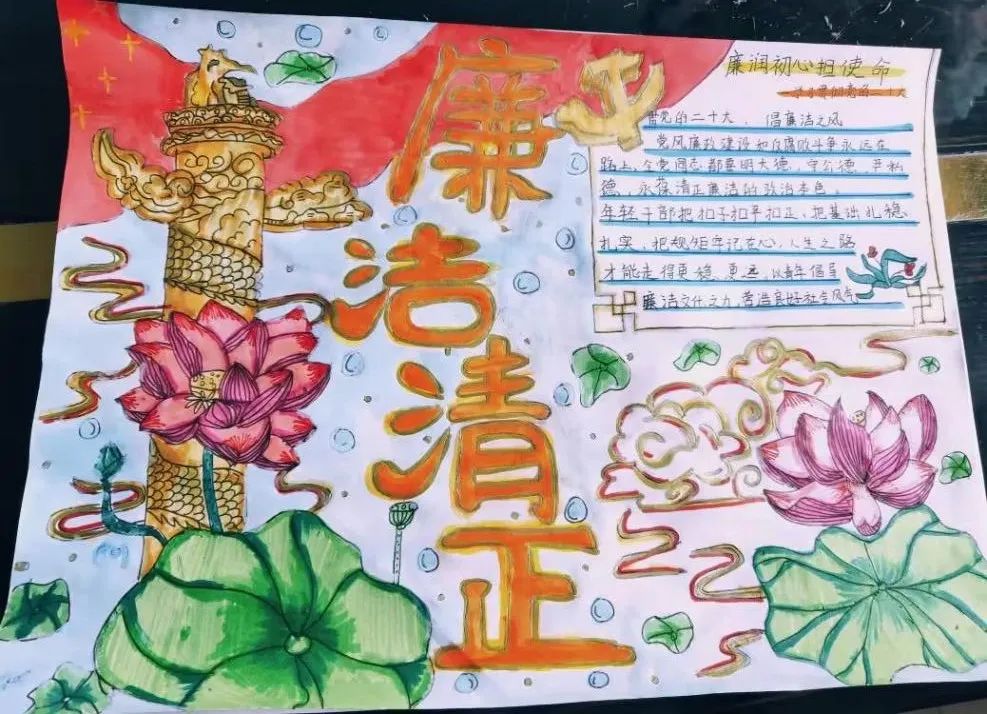 廉洁清正
廉润初心担使命
学习贯彻党的二十大
喜党的二十大，倡廉洁之风
党风廉政建设和反腐败斗争永远在
路上，全党同志都要明大德、守公德、严私
德，永葆清正廉洁的政治本色。
年轻干部把扣子扣早扣正，把基础扎稳
扎实，把规矩牢记在心，人生之路
才能走得更稳、更远，以青年倡呈
廉洁文化之力，营造良好社会风气